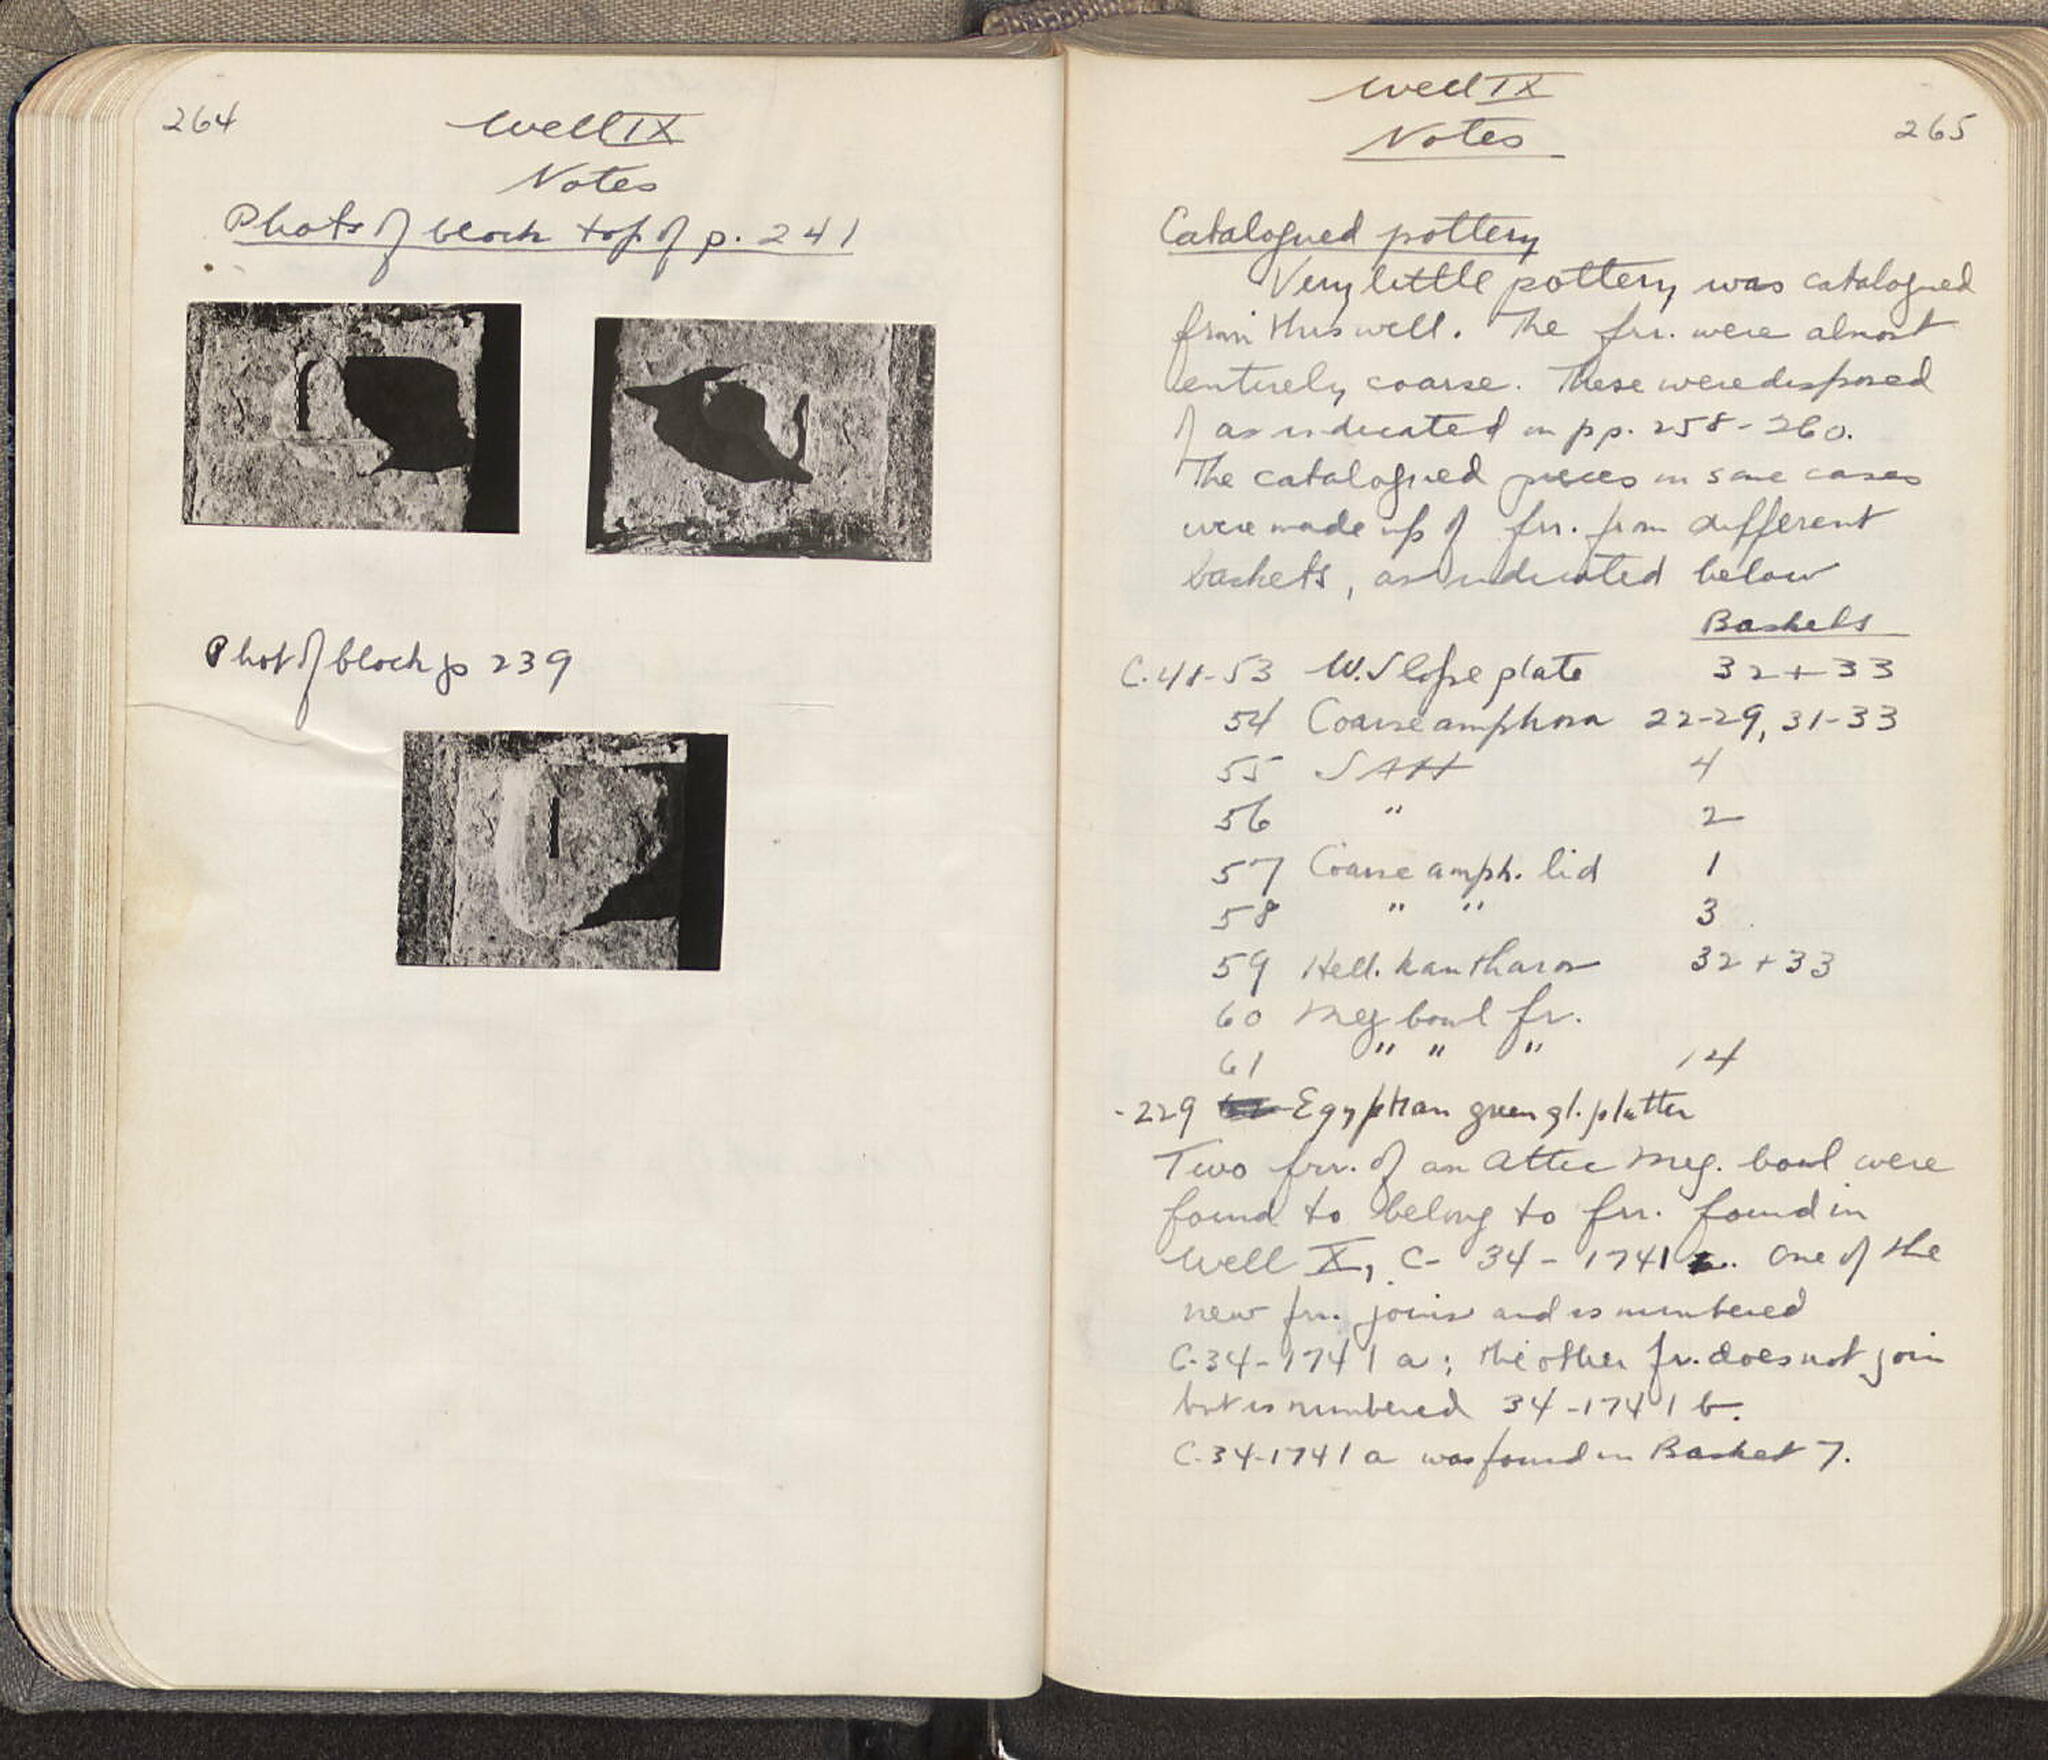 264
Well IX
Notes
Phots of block top of p. 241
Phot of block p 239
Well IX
Notes
265
Catalogued pottery
Very little pottery was catalogued
from this well. The frr. were almost
entirely coarse. These were disposed
of as indicated on pp. 258-260.
The catalogued pieces in some cases
were made up of frr. from different
baskets, as indicated below
Baskets
C-48-53 W. Slope plate 32+33
54 Coarse amphora 22-29, 31-33
55 SAH 4
56 " 2
57 Coarse amph. lid 1
58 " " 3
59 Hell. kantharos 32+33
60 Meg bowl fr.
61 " " " 14
-229 Egyptian green gl. platter
Two frr. of an Attic Meg. bowl were
found to belong to frr. found in
Well X, C-34-1741. One of the
new frr. joins and is numbered
C-34-1741 a; the other fr. does not join
but is numbered 34-1741 b.
C-34-1741 a was found in Basket 7.